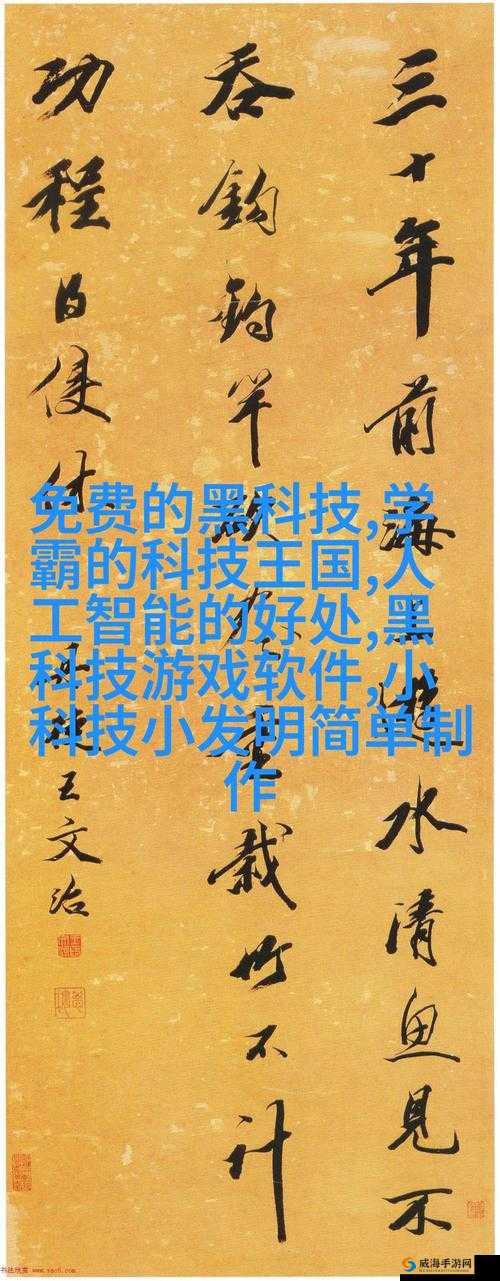 免费的黑科技,学
霸的科技王国,人
工智能的好处,黑
科技游戏软件,小
科技小发明简单制
作
三十年前海遊水清魚見不
吞鉤釣竿重栽竹不計
功程便休
王文治
威海手游网